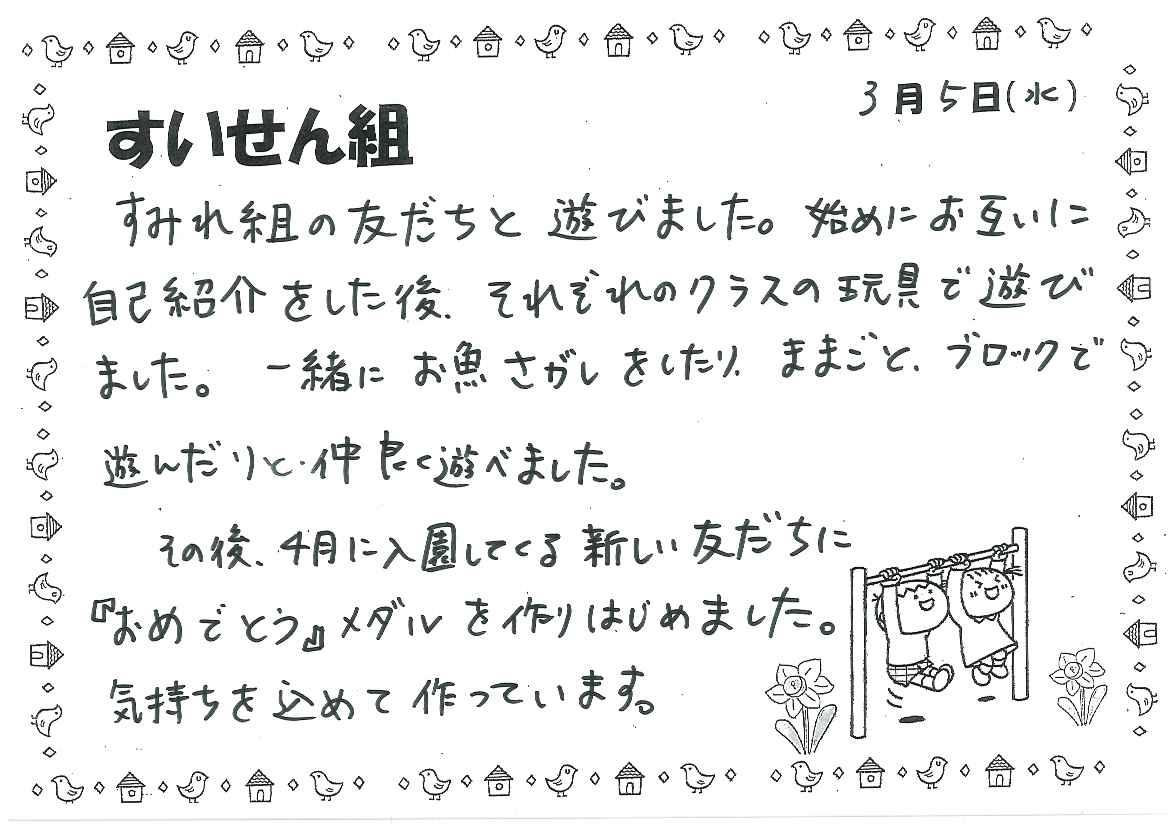 3月5日(水)
すいせん組
すみれ組の友だちと遊びました。始めにお互いに
自己紹介をした後、それぞれのクラスの玩具で遊び
ました。一緒にお魚さがしをしたり、ままごと、ブロックで
遊んだりと、仲良く遊べました。
その後、4月に入園してくる新しい友だちに
『おめでとう』メダルを作りはじめました。
気持ちを込めて作っています。